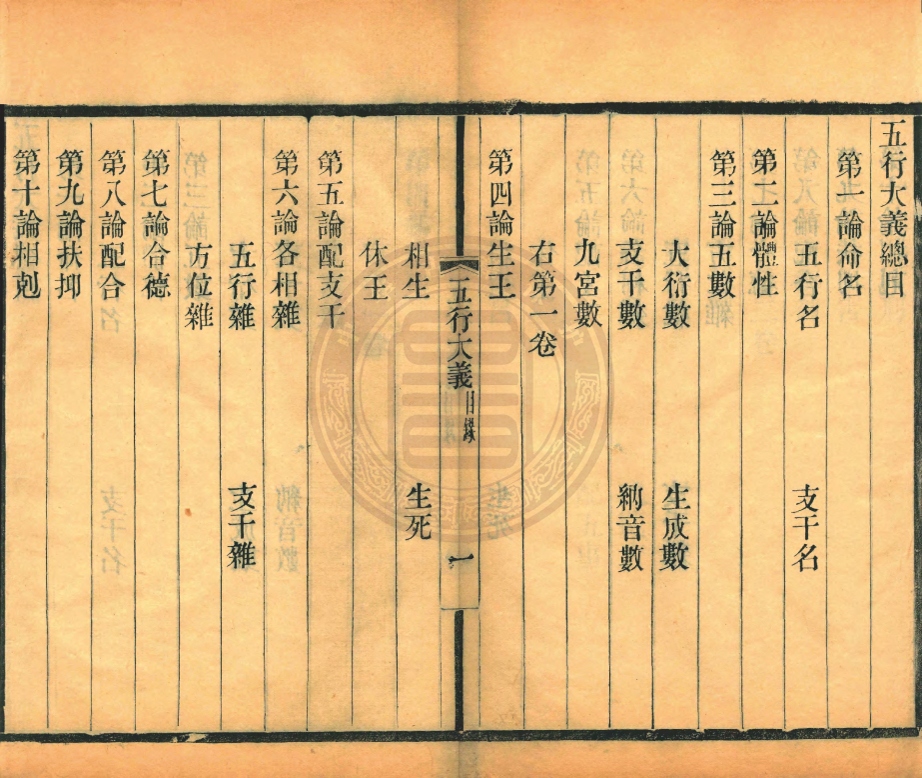 五行大義總目
第一論命名
五行名　支干名
第二論體性
第三論五數
大衍數　生成數
支干數　納音數
九宮數
右第一卷
第四論生王
五行大義　目錄　一
相生　生死
休王
第五論配支干
第六論各相雜
五行雜　支干雜
方位雜
第七論合德
第八論配合
第九論扶抑
第十論相剋